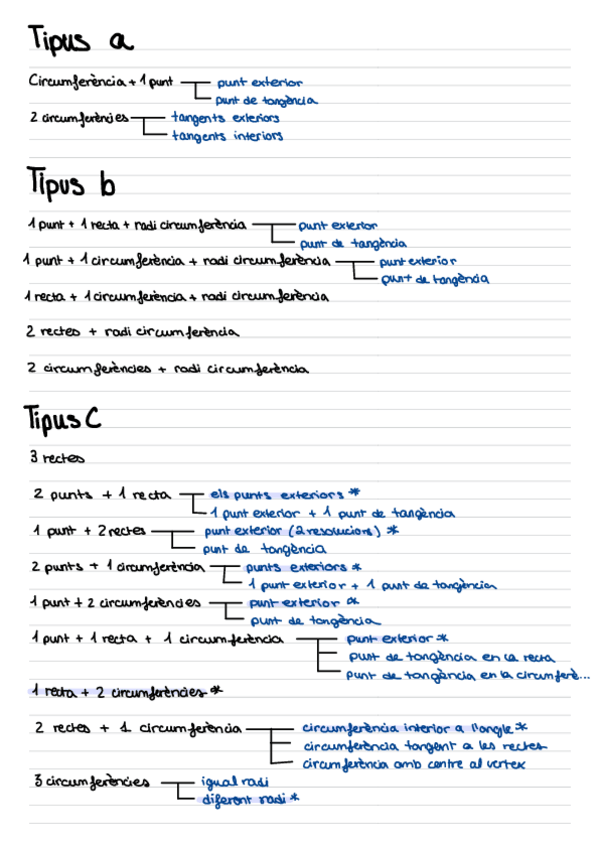 Tipus a
Circumferència + 1 punt punt exterior
punt de tangència
2 circumferències tangents exteriors
tangents interiors
Tipus b
1 punt + 1 recta + radi circumferència punt exterior
punt de tangència
1 punt + 1 circumferència + radi circumferència punt exterior
punt de tangència
1 recta + 1 circumferència + radi circumferència
2 rectes + radi circumferència
2 circumferències + radi circumferència
Tipus C
3 rectes
2 punts + 1 recta els punts exteriors *
1 punt exterior + 1 punt de tangència
1 punt + 2 rectes punt exterior (2 resolucions) *
punt de tangència
2 punts + 1 circumferència punts exteriors *
1 punt exterior + 1 punt de tangència
1 punt + 2 circumferències punt exterior *
punt de tangència
1 punt + 1 recta + 1 circumferència punt exterior *
punt de tangència en la recta
punt de tangència en la circumferè...
1 recta + 2 circumferències *
2 rectes + 1 circumferència circumferència interior a l'angle *
circumferència tangent a les rectes
circumferència amb centre al vertex
3 circumferències igual radi
diferent radi *